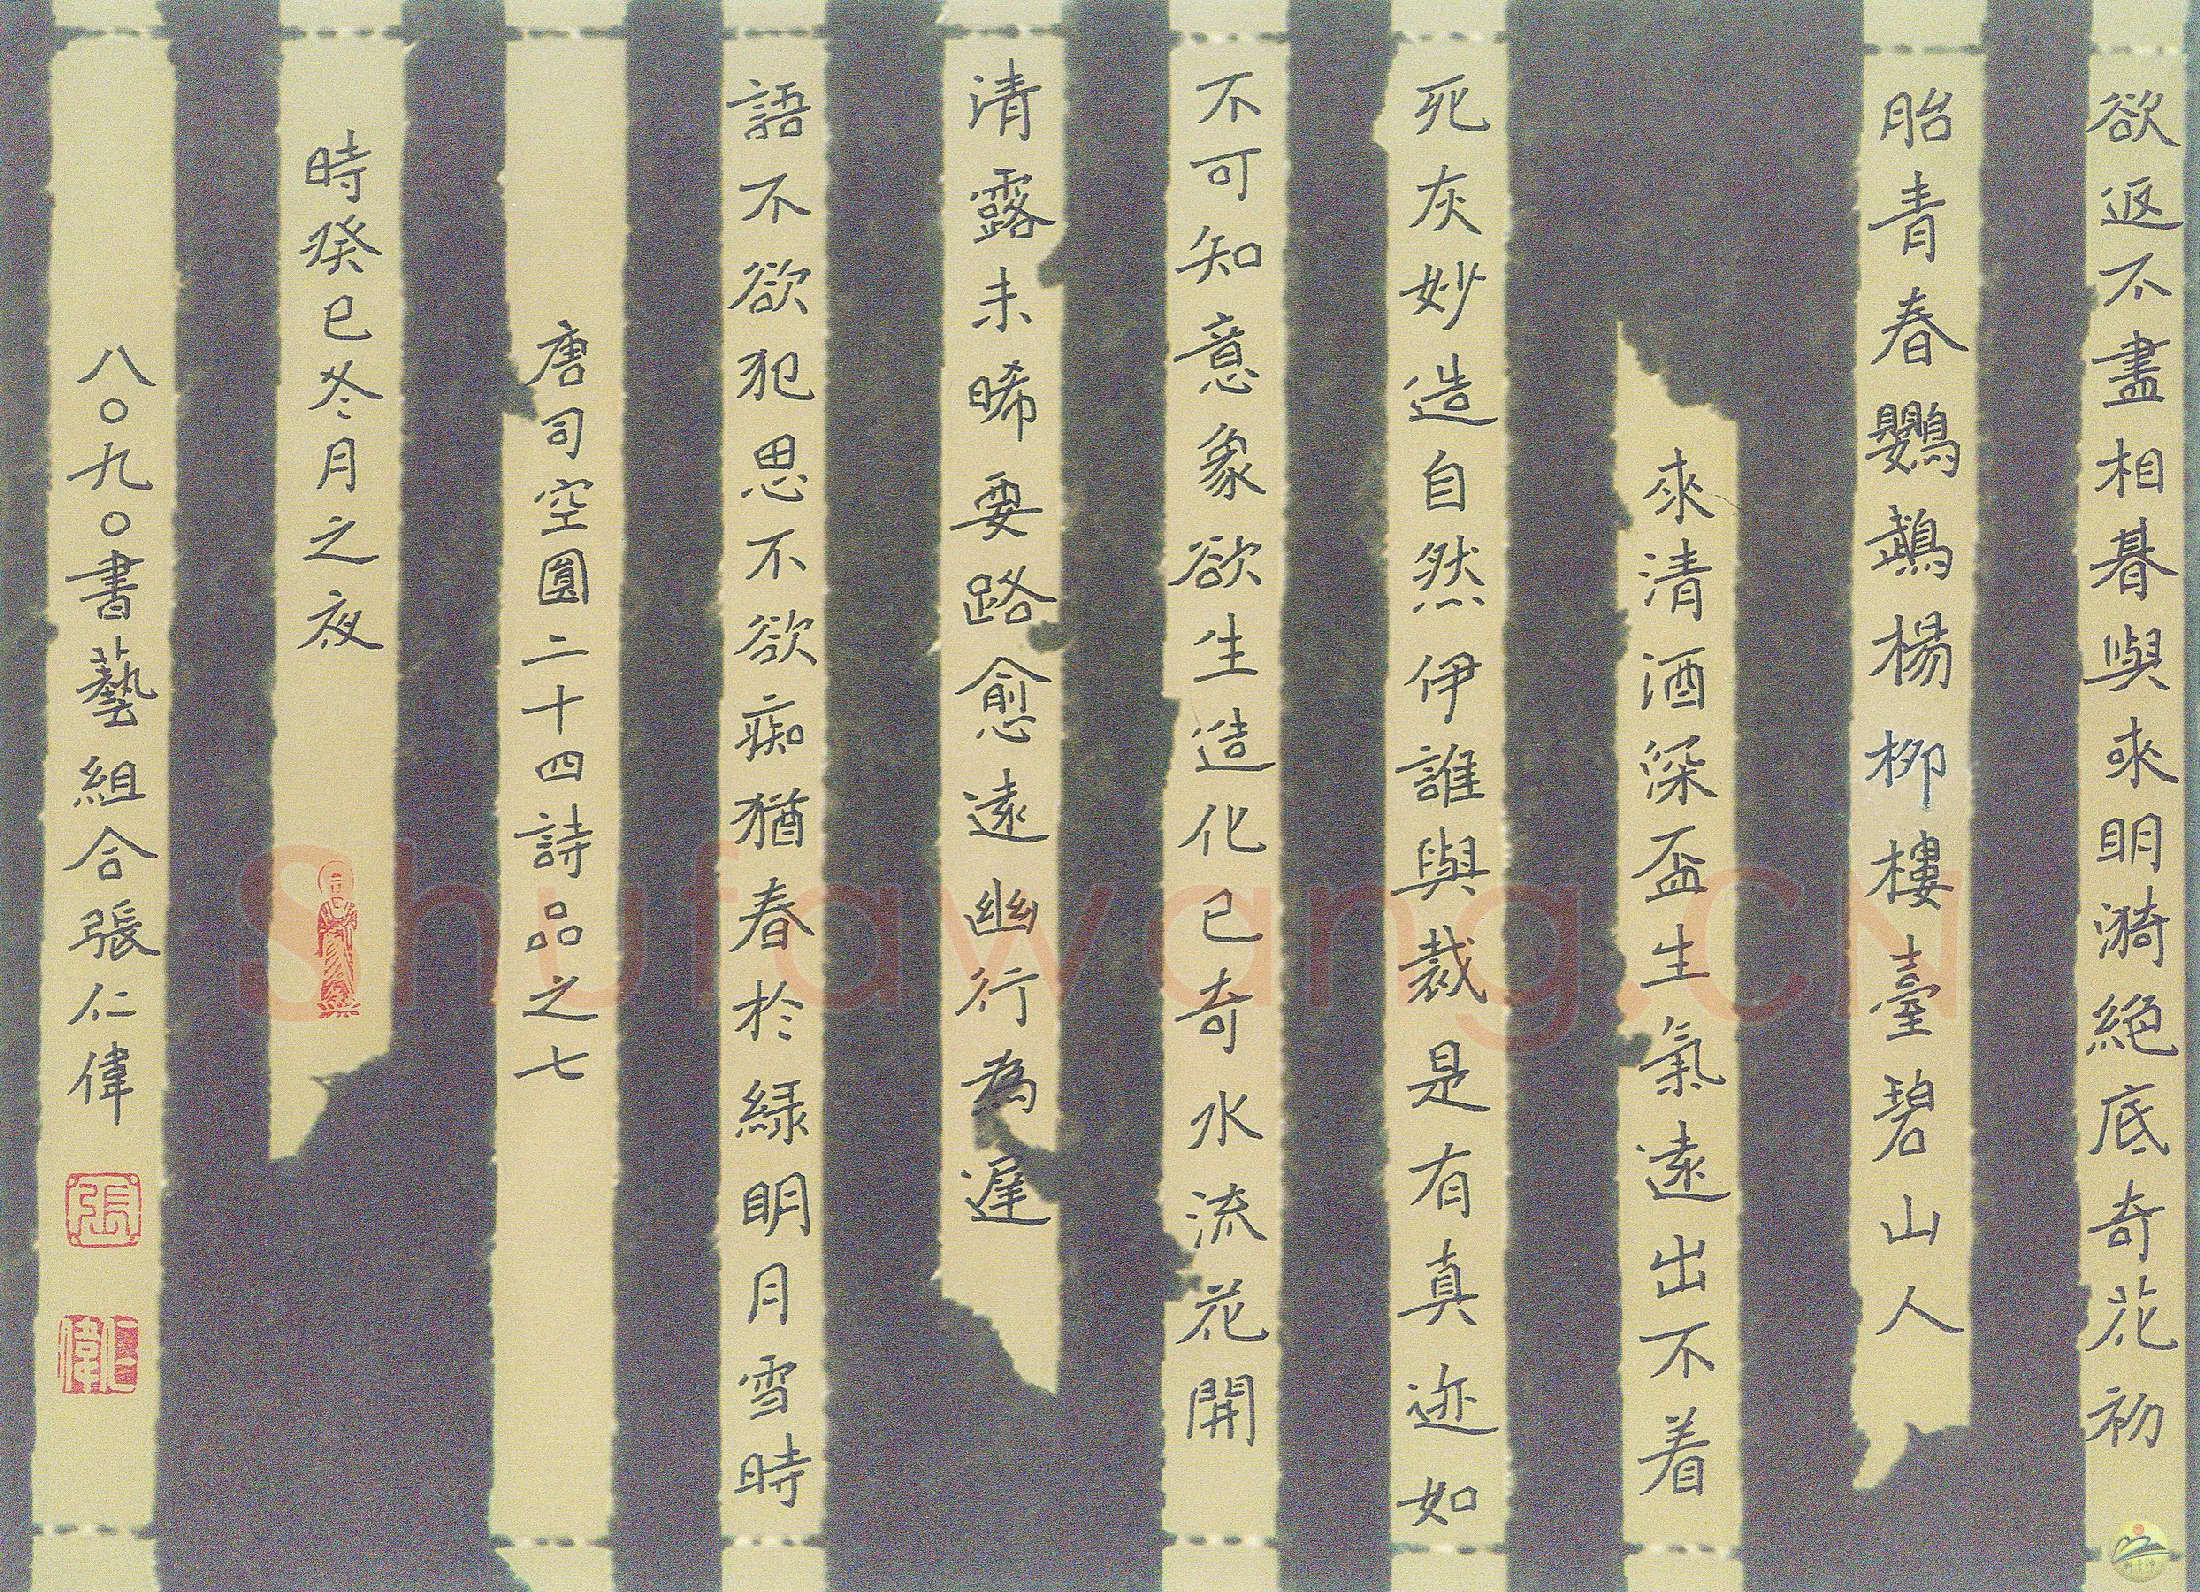 欲返不盡相朞與來明漪絕底奇花初
胎青春鸚鵡楊柳樓臺碧山人
來清酒深盃生氣遠出不着
死灰妙造自然伊誰與裁是有真迹如
不可知意象欲生造化已奇水流花開
清露未晞要路愈遠幽行為遲
語不欲犯思不欲痴猶春於緑明月雪時
唐司空圓二十四詩品之七
時癸巳冬月之夜
八〇九〇書藝組合張仁偉
張
仁偉
Shufawang.CN